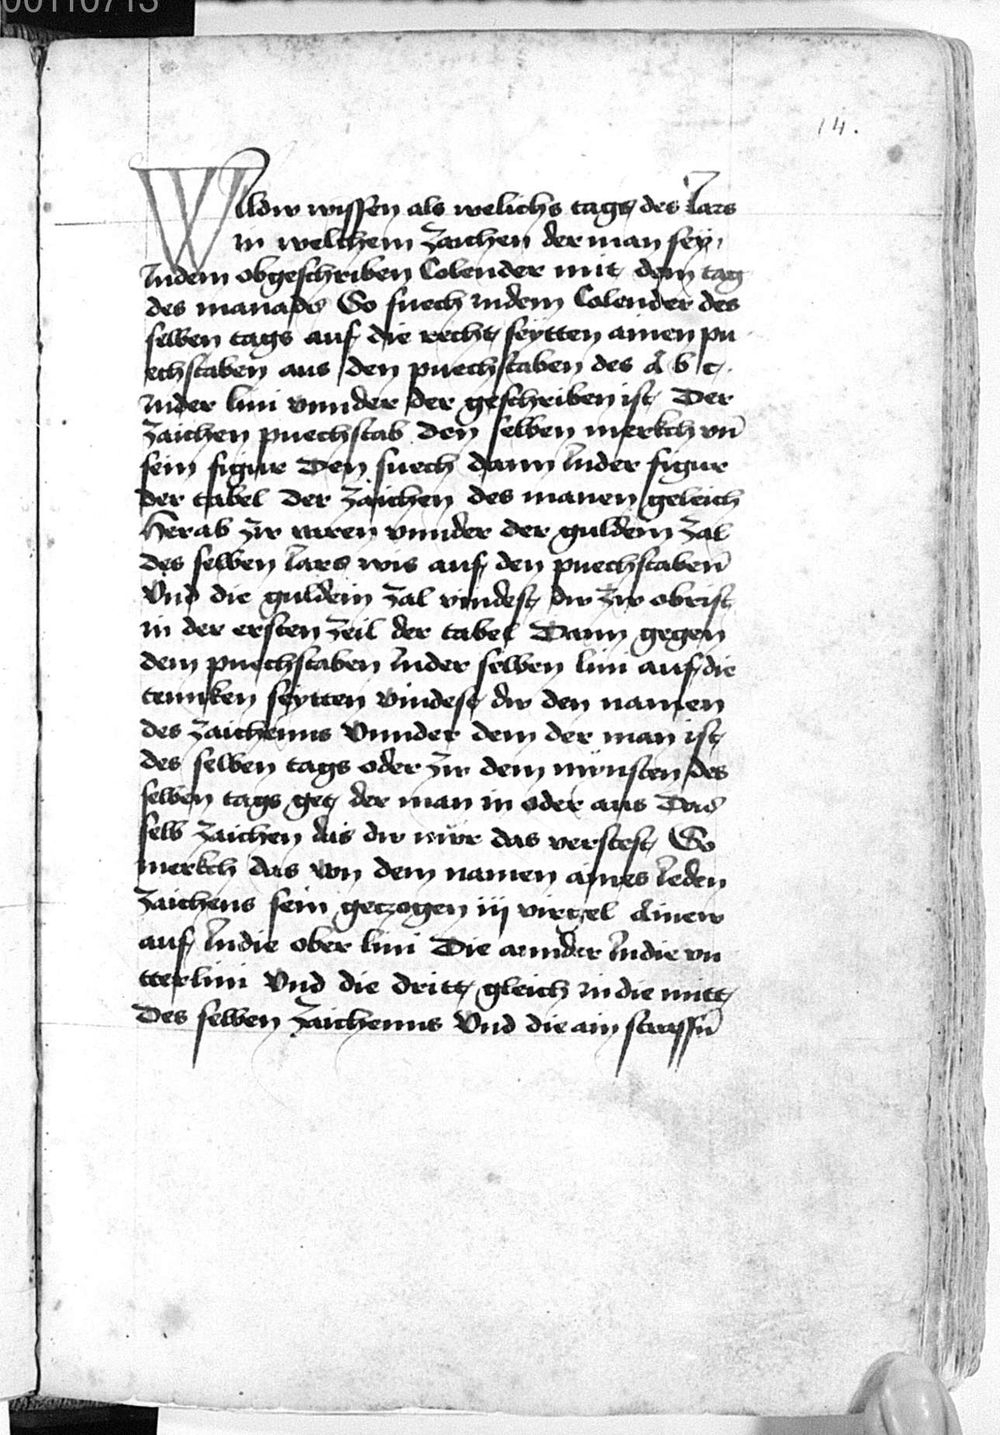 00110713
14.
Wildw wissen als welichs tags des Iars
in welchem zaichen der man sey,
Indem obgeschriben Colender mit dem tag
des manads So suech indem Colender des
selben tags auf die recht seytten ainen pu
echstaben aus den puechstaben des A b c.
Inder lini vnnder der geschriben ist Der
zaichen puechstab den selben merkch vn̄
sein figur Den suech dann Inder figur
der tabel der zaichen des manen geleich
Herab zw vnnder der guldein zal
des selben Iars wis auf den puechstaben
Vnd die guldein zal vindest dw zw obrist
in der ersten zeil der tabel Dann gegen
dem puechstaben Inder selben lini auf die
tennken seytten vindest dw den namen
des zaichenns Vnnder dem der man ist
des selben tags oder zw dem mynsten des
selben tags get der man in oder aus Das
selb zaichen das dw nwr das verstest So
merkch das von dem namen aines Ieden
zaichens sein getzogen iij virtzel Ainew
auf Indie ober lini Die annder Indie vn
tterlini Vnd die dritt gleich indie mitt
Des selben zaichenns Vnd die ain straffn̄